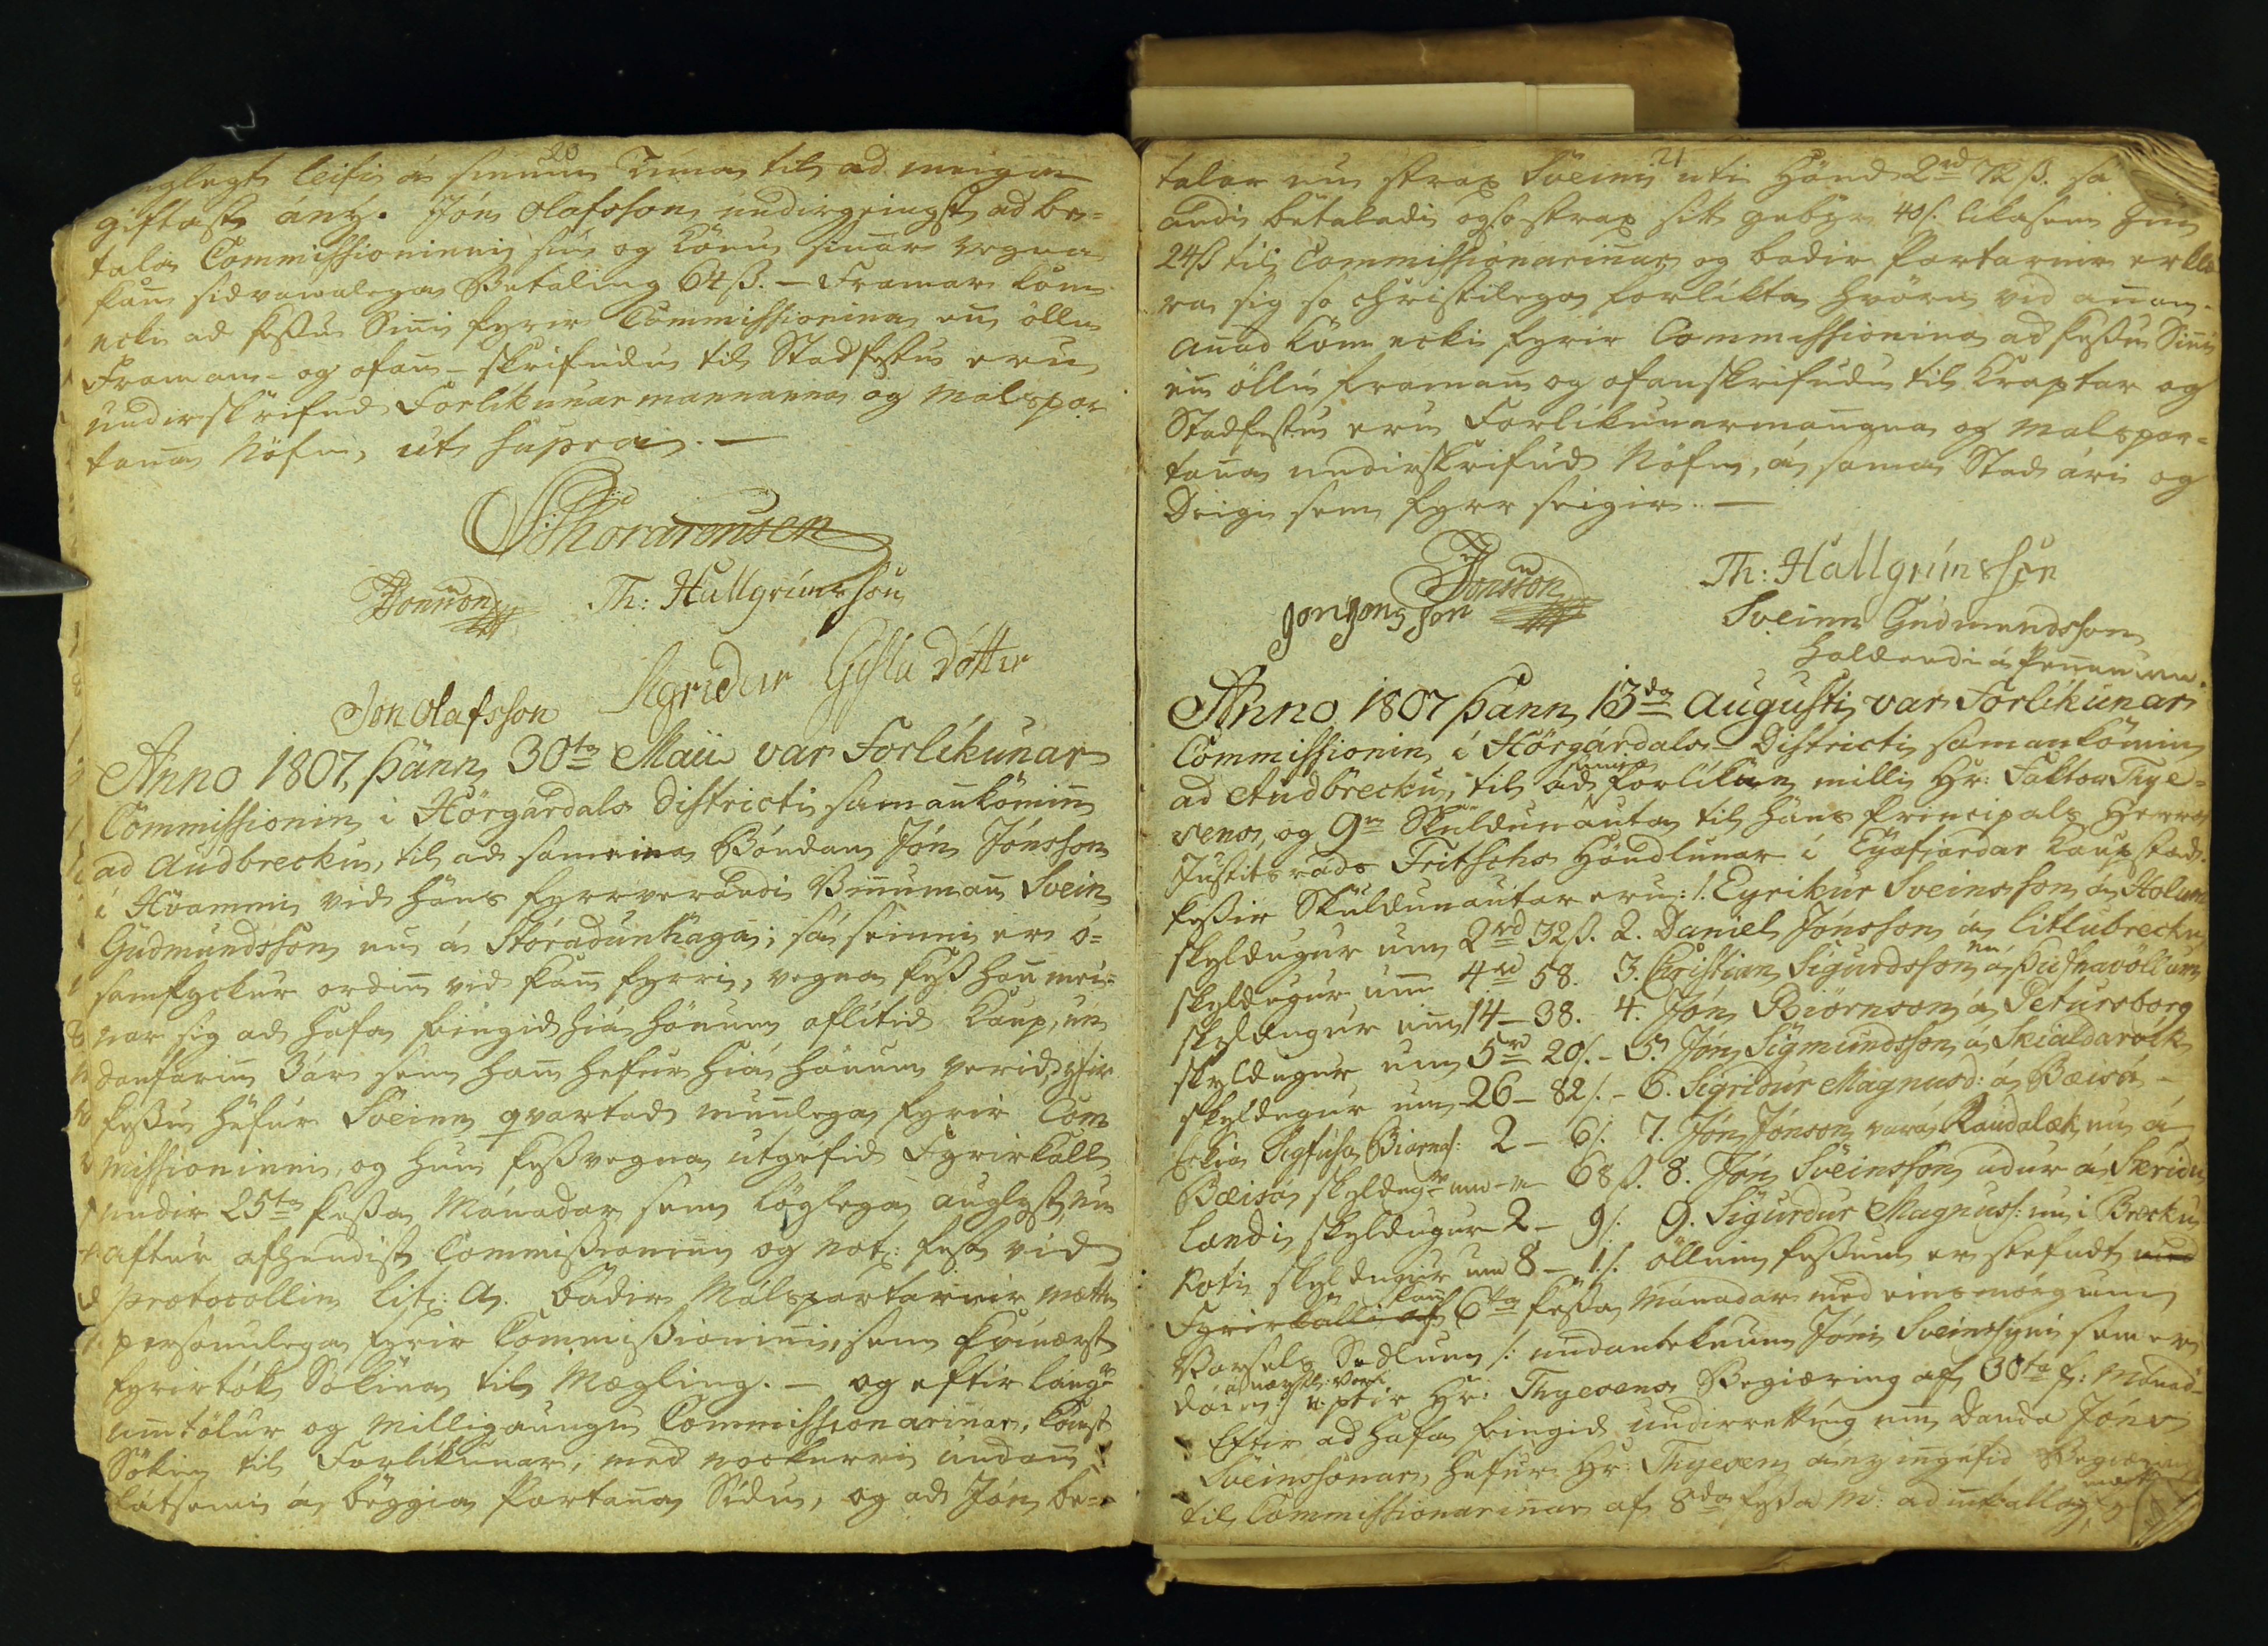 20
leifi á sinum Tima til ad meiga
giftast áný. Jón Olafsson undirgeingst ad be-
tala Commissioninni sin og Konu sinar vegna
þan sidvanalega Betaling 64 ß. — Framar kom
ecki ad þessu Siñi fyrir Commissionina enn öllu
Framan- og ofan-skrifudu til Stadfestu eru
undirskrifud Forlikunarmannanna og malspar
tana Nöfn, ut supra. —
S. Thorarensen
Jonsson Th: Hallgrimsson
Jon Olafsson Sigridur Gisla dotter
Anno 1807, þann 30ta Maii var Forlikunar
Commissionin i Hörgárdals Districti samankominn
ad Audbrecku, til ad sameina Bóndan Jón Jónsson
i Hvammi vid hans fyrrverandi Vinnuman Svein
Gudmundsson nu á Stóradunhaga; sá seinni er ó-
samþyckur ordin vid þan fyrri, vegna þess han mei-
nar sig ad hafa feingid hiá hönum oflitid kaup, un
danfarin 3 ár sem han hefur hiá hönum verid, yfir
þessu hefur Sveinn qvartad munlega fyrir Com
missioninni, og hun þessvegna utgefid Fyrirkall
undir 25ta þessa Mánadar sem löglega auglyst, nu
aftur afhendist Commissioninni og not: fest vid
protocollin Lit: A. bádir Málspartarnir mættu
personulega fyrir Commissioninni, sem þvinærst
fyrirtók Sökina til Mægling. — og eftir langar
umtölur og milligaungu Commissionarinar, komst
Sökin til Forlikunar, med nockurri undan
látsemi á beggia Partana Sidu, og ad Jón be-
21
talar nu strax Sveini uti Hönd 2rd 72 ß. sá
andi betaladi ogso strax sitt gebyr 40 ß. likasem hin
24 ß til Commissionarinar og badir Partarnir erklæ
ra sig so christilega forlikta hvörn vid annan.
Annad kom ecki fyrir Commissionina ad þessu Siñi
en öllu framan og ofanskrifudu til Kraptar og
Stadfestu eru Forlikunarmanna og malspar-
tana undirskrifud Nöfn, á sama Stad ári og
Deigi sem fyrr seigir. —
Jonsson Th: Hallgrimsson
Jon Jons son Sveinn Gudmundsson
haldandi á Pennanum.
Anno 1807 þann 13da Augusti var Forlikunar
Commissionin i Hörgárdals Districti samankominn
ad Audbrecku, til ad semia Forlikun milli Hr: Faktor Thye-
rens, og 9 Skuldunauta til hans Principals Herra
Justitsráds Fritschs Höndlunar i Eyafiardar Kaupstad.
þessir Skuldunautar eru: 1. Eyrikur Sveinsson á Holum
skyldugur um 2rd 32 ß. 2. Daniel Jónsson á Litlubrecku
skyldugur um 4rd 58. 3. Christian Sigurdsson nu á Þufnavöllum
skyldugur um 14 – 38. 4. Jón Biörnsson á Petursborg
skyldugur um 5rd 20 ß. – 5. Jón Sigmundsson á Skialdarvik
skyldugur um 26 – 82 ß. – 6. Sigridur Magnusd: á Bæisá –
Eckia Sigfusa Biarnas: 2 – 6 ß. 7. Jón Jónsson var á Raudalæk nu á
Bæisá skyldugr um – „ – 68 ß. 8. Jón Sveinsson adur á Skridu
landi skyldugur 2 – 9 ß. 9. Sigurdur Magnuss: nu i Brecku
koti skyldugur um 8 – 1 ß. öllum þessum er stefndt med
Fyrirkalli af 6ta þessa Mánadar med einsmörgum
Varsels Sedlum /: undanteknum Jóni Sveinssyni sem er
dáin :/ eptir Hr: Thyerens Begiæring af 30ta f: Mánad-
Eftir ad hafa feingid undirretting um Dauda Jóns
Sveinssonar, hefur Hr: Thyeren áný ingefid Begiæring
til Commissionarinar af 8da þessa M: ad innkalla